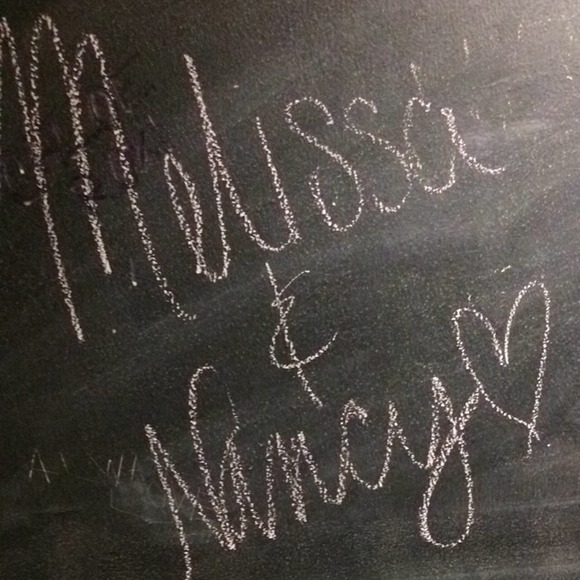 Melissa
&
Nancy